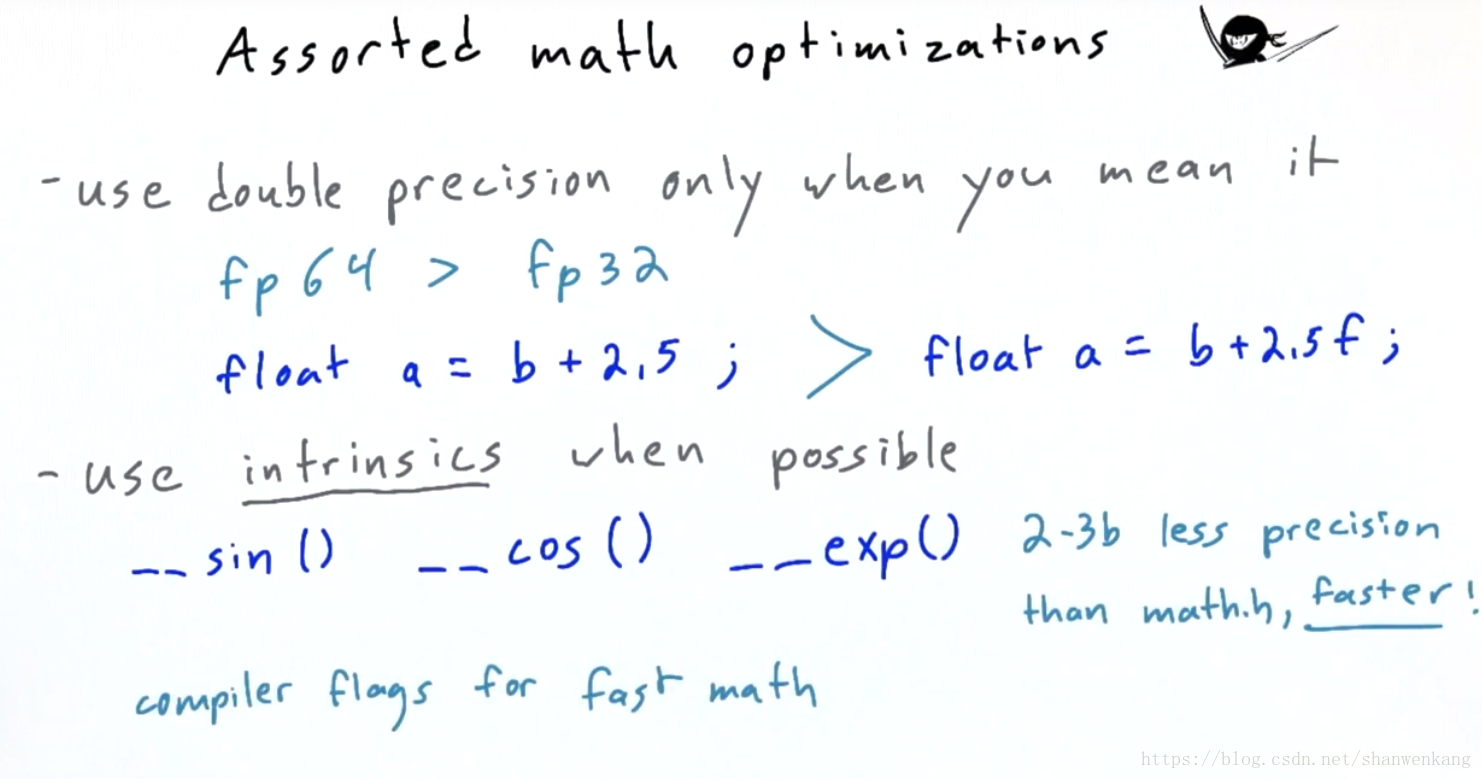 Assorted math optimizations
- use double precision only when you mean it
fp64 > fp32
float a = b + 2.5 ; > float a = b + 2.5f ;
- use intrinsics when possible
__sin() __cos() __exp() 2-3b less precision
than math.h, faster!
compiler flags for fast math
https://blog.csdn.net/shanwenkang